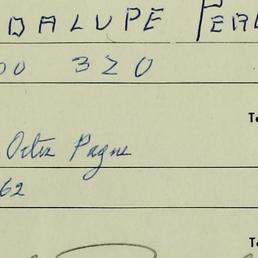 DALUPE FER
00 320
Ortiz Pagne
62
T
T